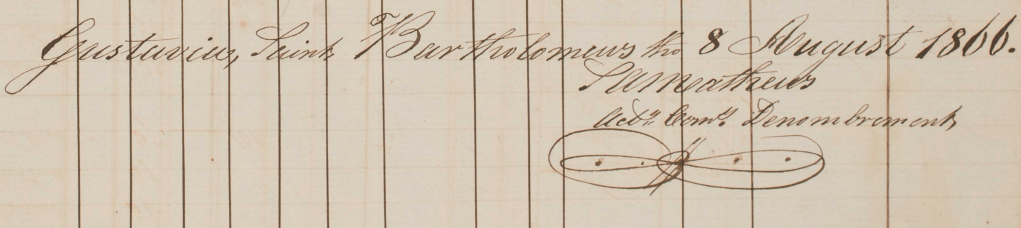 Gustavia, Saint Bartholomeus the 8 August 1866.
Mathews
Act.g Com.g Denombrement